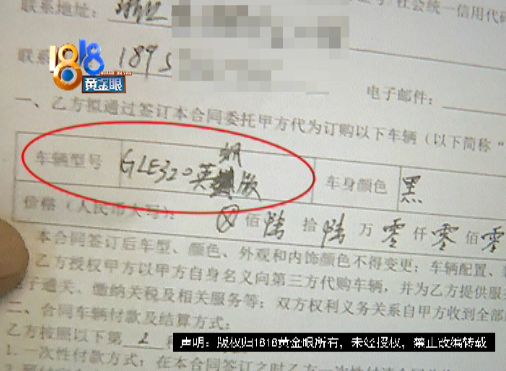 联系地址：浙江
社会统一信用代码
联系
1895
1818
黄金眼
电子邮件：
一、乙方拟通过签订本合同委托甲方代为订购以下车辆（以下简称“
车辆型号 GLE320英 帆 版 车身颜色 黑
价格（人民币大写）： ⊗ 佰 陆 拾 陆 万 零 仟 零 佰 零
本合同签订后车型、颜色、外观和内饰颜色不得变更；车辆配置、
乙方授权甲方以甲方自身名义向第三方代购车辆，并为乙方提供服
子通关、缴纳关税及相关服务等；双方权利义务关系自甲方收到全部
二、合同车辆付款及结算方式：
乙方按照以下第 2
声明：版权归1818黄金眼所有，未经授权，禁止改编转载
1.一次性付款方式：在本合同签订之时乙方一次性